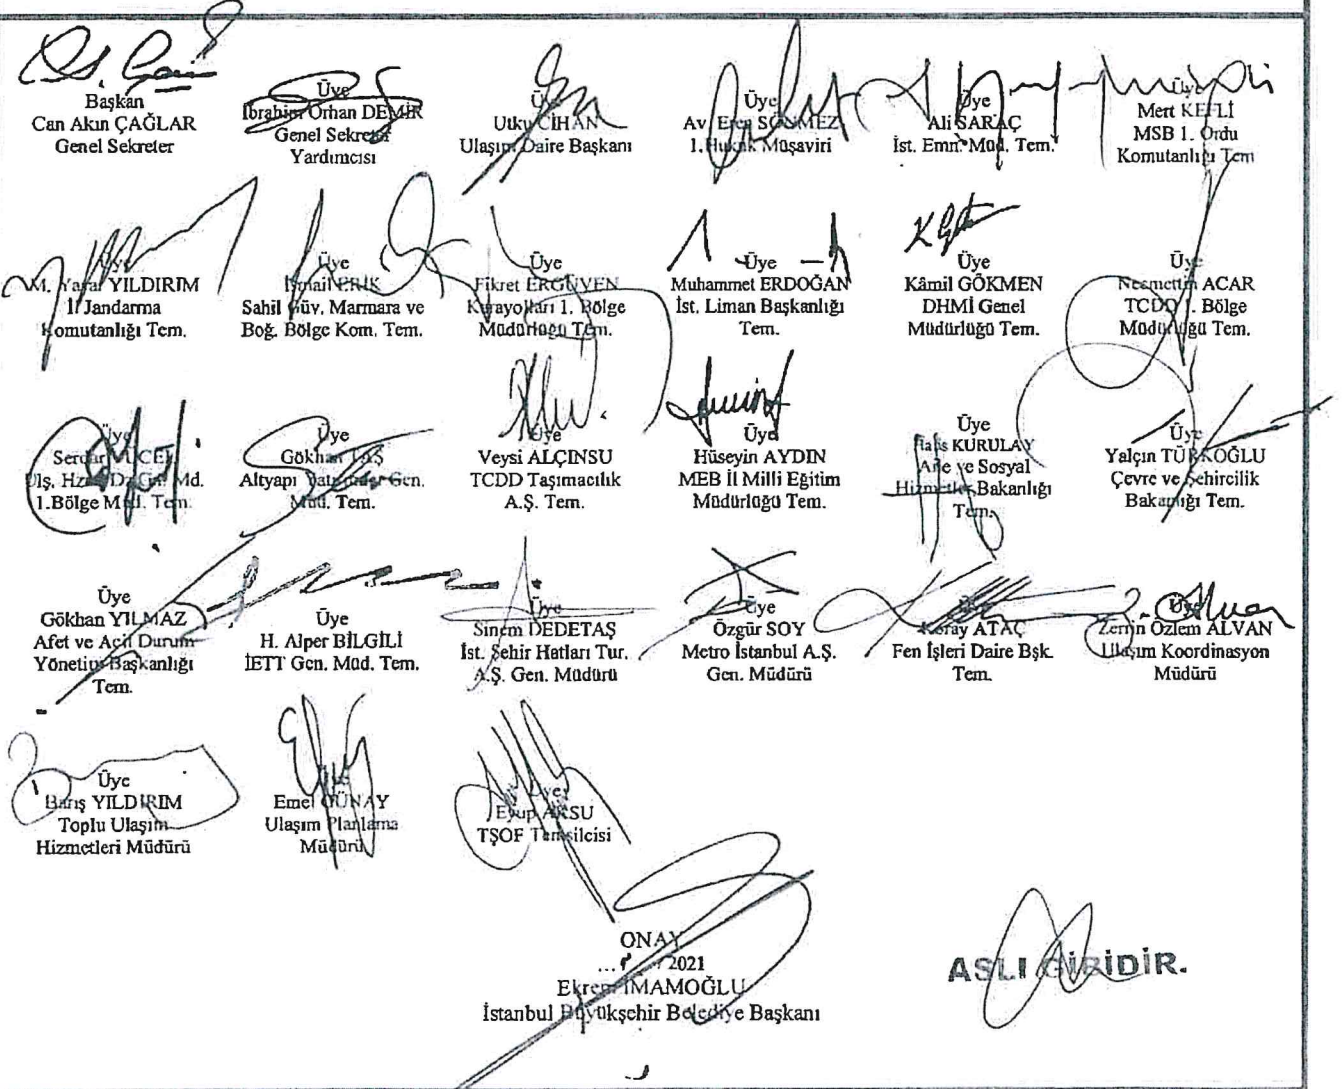 Başkan
Can Akın ÇAĞLAR
Genel Sekreter
Üye
İbrahim Orhan DEMİR
Genel Sekreter
Yardımcısı
Üye
Utku CİHAN
Ulaşım Daire Başkanı
Üye
Av. Eren SÖNMEZ
1.Hukuk Müşaviri
Üye
Ali SARAÇ
İst. Emn. Müd. Tem.
Üye
Mert KEFLİ
MSB 1. Ordu
Komutanlığı Tem
Üye
M. Yaşar YILDIRIM
İl Jandarma
Komutanlığı Tem.
Üye
İsmail ERİK
Sahil Güv. Marmara ve
Boğ. Bölge Kom. Tem.
Üye
Fikret ERGÜVEN
Karayolları 1. Bölge
Müdürlüğü Tem.
Üye
Muhammet ERDOĞAN
İst. Liman Başkanlığı
Tem.
Üye
Kâmil GÖKMEN
DHMİ Genel
Müdürlüğü Tem.
Üye
Necmettin ACAR
TCDD 1. Bölge
Müdürlüğü Tem.
Üye
Serdar YÜCEL
Ulş. Hzm. Md.
1.Bölge Müd. Tem.
Üye
Gökhan
Altyapı Yatırımlar Gen.
Müd. Tem.
Üye
Veysi ALÇINSU
TCDD Taşımacılık
A.Ş. Tem.
Üye
Hüseyin AYDIN
MEB İl Milli Eğitim
Müdürlüğü Tem.
Üye
KURULAY
Aile ve Sosyal
Hizmetler Bakanlığı
Tem.
Üye
Yalçın TÜRKOĞLU
Çevre ve Şehircilik
Bakanlığı Tem.
Üye
Gökhan YILMAZ
Afet ve Acil Durum
Yönetim Başkanlığı
Tem.
Üye
H. Alper BİLGİLİ
İETT Gen. Müd. Tem.
Üye
Sinem DEDETAŞ
İst. Şehir Hatları Tur.
A.Ş. Gen. Müdürü
Üye
Özgür SOY
Metro İstanbul A.Ş.
Gen. Müdürü
Üye
Koray ATAÇ
Fen İşleri Daire Bşk.
Tem.
Üye
Zerrin Özlem ALVAN
Ulaşım Koordinasyon
Müdürü
Üye
Barış YILDIRIM
Toplu Ulaşım
Hizmetleri Müdürü
Üye
Emel GÜNAY
Ulaşım Planlama
Müdürü
Üye
Eyup AKSU
TŞOF Temsilcisi
ONAY
2021
Ekrem İMAMOĞLU
İstanbul Büyükşehir Belediye Başkanı
ASLI GİBİDİR.